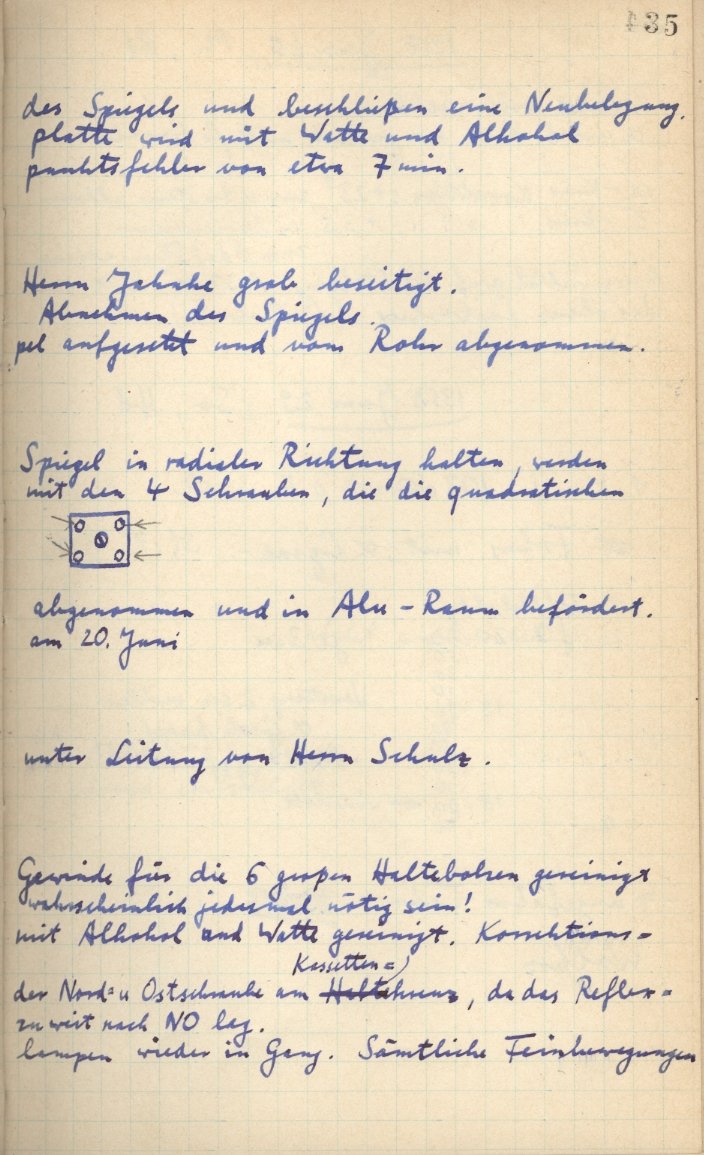 135
des Spiegels und beschließen eine Neubelegung.
platte wird mit Watte und Alkohol
punktsfehler von etwa 7 min.
Herrn Jahnke grob beseitigt.
Abnehmen des Spiegels.
pel aufgesetzt und vom Rohr abgenommen.
Spiegel in radialer Richtung halten, werden
mit den 4 Schrauben, die die quadratischen
abgenommen und in Alu-Raum befördert.
am 20. Juni
unter Leitung von Herrn Schulz.
Gewinde für die 6 großen Haltebolzen gereinigt
wahrscheinlich jedesmal nötig sein!
mit Alkohol und Watte gereinigt. Korrektions=
Kassetten=
der Nord= u Ostschraube am Haltekreuz, da das Reflex=
zu weit nach NO lag.
lampen wieder in Gang. Sämtliche Feinbewegungen